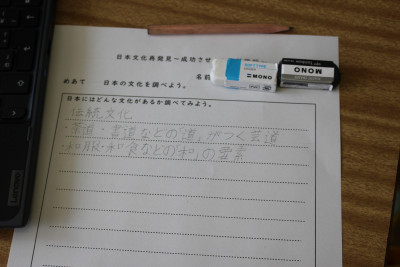 日本文化再発見~成功させ
名前
めあて 日本の文化を調べよう。
日本にはどんな文化があるか調べてみよう。
伝統文化
・茶道・書道などの「道」がつく芸道
・和服・和食などの「和」の要素
MONO
MONO
Lenovo